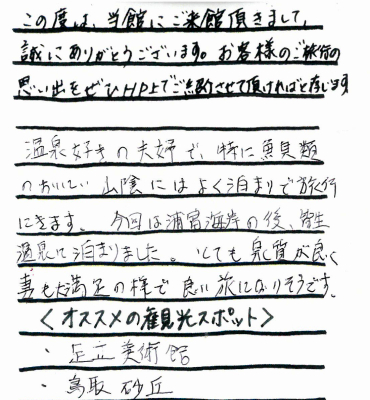 この度は、当館にご来館頂きまして、
誠にありがとうございます。お客様のご旅行の
思い出をぜひHP上でご紹介させて頂ければと存じます
温泉好きの夫婦で、特に魚貝類
のおいしい山陰にはよく泊まりで旅行
にきます。今回は浦富海岸の後、皆生
温泉に泊まりました。とても泉質が良く
妻も大満足の様で良い旅になりそうです。
〈オススメの観光スポット〉
・足立美術館
・鳥取砂丘